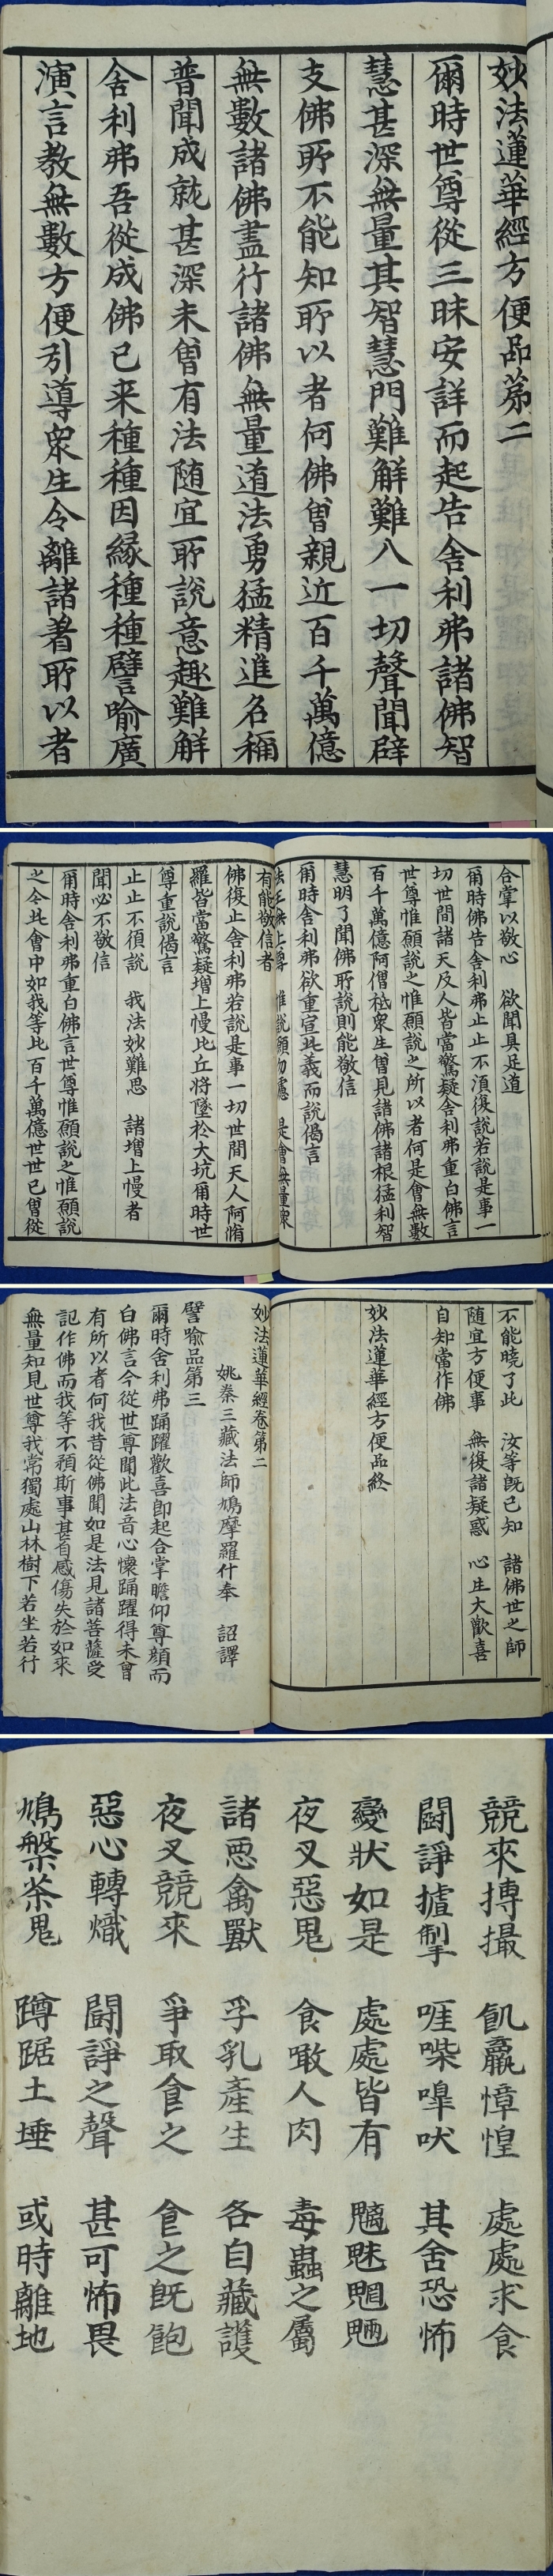 妙法蓮華經方便品苐二
爾時世尊從三昧安詳而起告舍利弗諸佛智
慧甚深無量其智慧門難解難入一切聲聞辟
支佛所不能知所以者何佛曾親近百千萬億
無數諸佛盡行諸佛無量道法勇猛精進名稱
普聞成就甚深未曾有法随宜所說意趣難解
舍利弗吾從成佛已来種種因緣種種譬喻廣
演言教無數方便引導眾生令離諸著所以者
合掌以敬心　欲聞具足道
爾時佛告舍利弗止止不湏復說若說是事一
切世間諸天及人皆當驚疑舍利弗重白佛言
世尊惟願說之惟願說之所以者何是會無數
百千萬億阿僧祇衆生曾見諸佛諸根猛利智
慧明了聞佛所說則能敬信
爾時舍利弗欲重宣此義而說偈言
法王無上尊　惟說願勿慮　是會無量衆
有能敬信者
佛復止舍利弗若說是事一切世間天人阿脩
羅皆當驚疑增上慢比丘将墜於大坑爾時世
尊重說偈言
止止不須說　我法妙難思　諸增上慢者
聞必不敬信
爾時舍利弗重白佛言世尊惟願說之惟願說
之今此會中如我等比百千萬億世世已曾從
不能曉了此　汝等既已知　諸佛世之師
随宜方便事　無復諸疑惑　心生大歡喜
自知當作佛
妙法蓮華經方便品終
妙法蓮華經卷第二
姚秦三藏法師鳩摩羅什奉　詔譯
譬喻品第三
爾時舍利弗踊躍歡喜即起合掌瞻仰尊顏而
白佛言今從世尊聞此法音心懷踊躍得未曾
有所以者何我昔從佛聞如是法見諸菩薩受
記作佛而我等不預斯事甚自感傷失於如來
無量知見世尊我常獨處山林樹下若坐若行
競來搏撮　飢羸慞惶　處處求食
鬪諍摣掣　啀喍嘷吠　其舍恐怖
變狀如是　處處皆有　魑魅魍魎
夜叉惡鬼　食噉人肉　毒蟲之屬
諸惡禽獸　孚乳產生　各自藏護
夜叉競來　爭取食之　食之既飽
惡心轉熾　鬪諍之聲　甚可怖畏
鳩槃荼鬼　蹲踞土埵　或時離地